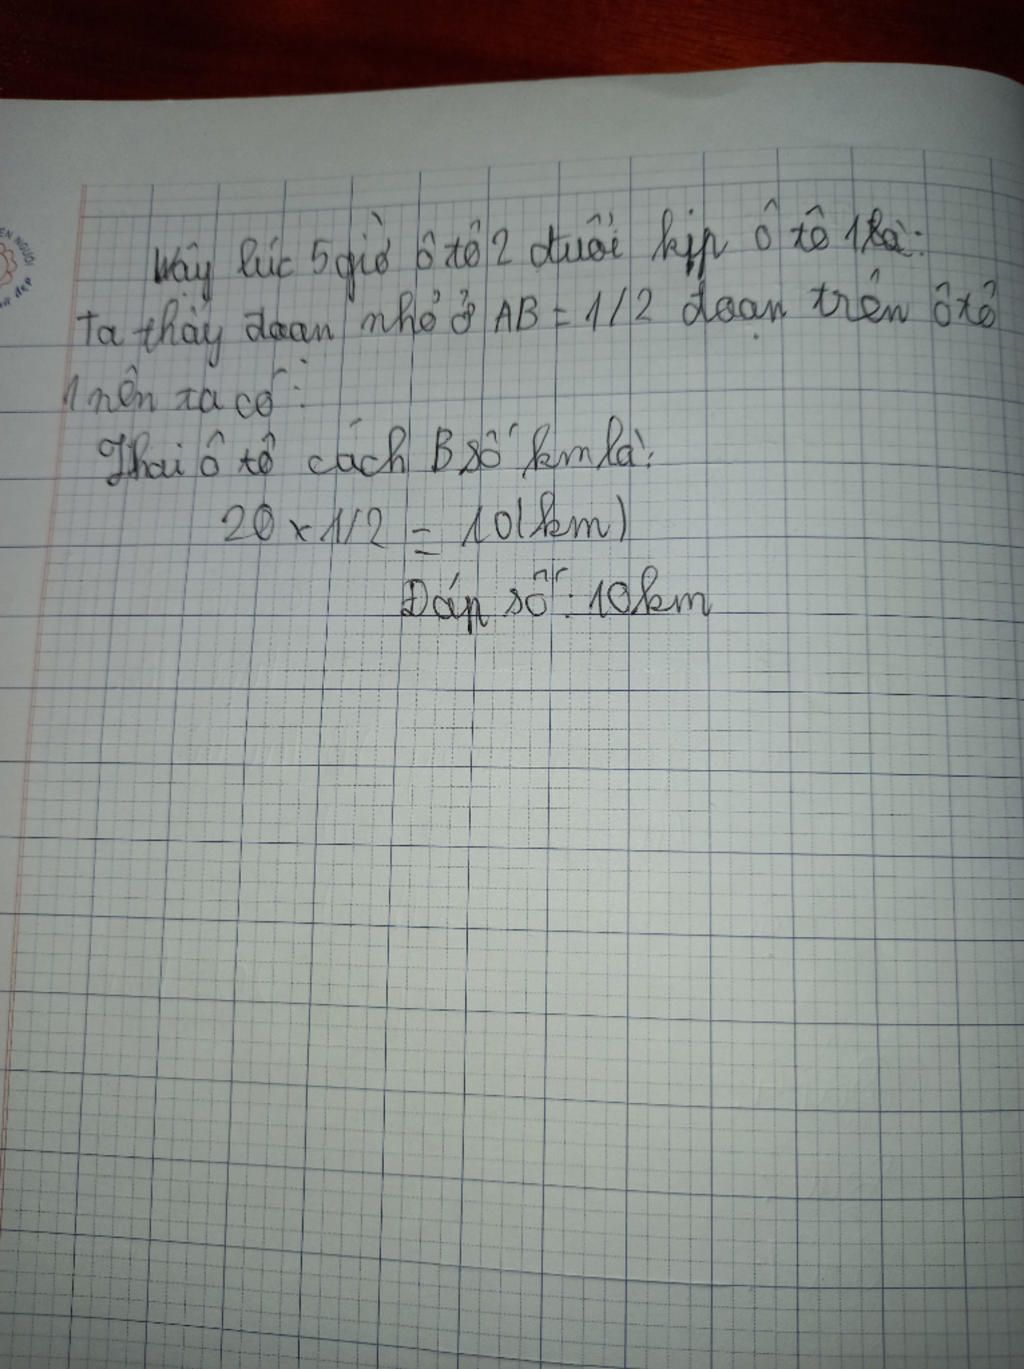 Vây lúc 5 giờ ô tô 2 đuổi kịp ô tô 1 là:
Ta thấy đoạn nhỏ ở AB = 1/2 đoạn trên ôtô
1 nên ta có:
Khi ô tô cách B số km là:
20 x 1/2 = 10(km)
Đáp số: 10km